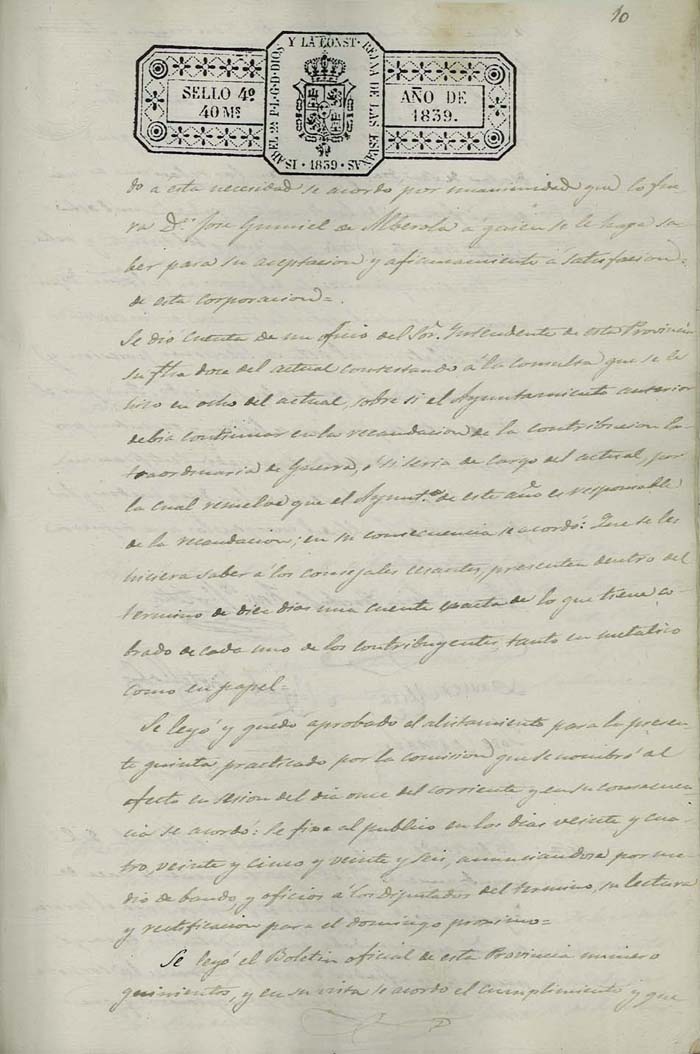 10
SELLO 4º
40 Ms
ISABEL 2ª P. L. G. D. DIOS Y LA CONST. REYNA DE LAS ESPAÑAS
1839
AÑO DE
1839.
do a esta necesidad se acordo por unanimidad que lo fue
ra Dn. Jose Gumiel de Alberola á quien se le haga sa
ber para su aceptacion y afianzamiento á satisfacion
de esta corporacion=.
Se dió cuenta de un oficio del Sor. Intendente de esta Provincia
su fha doce del actual contestando á la consulta que se le
hizo en ocho del actual, sobre si el Ayuntamiento anterior
debia continuar en la recaudacion de la contribucion Es-
traordinaria de Guerra, ó si seria de cargo del actual, por
la cual resuelve que el Ayuntº. de este año es responsable
de la recaudacion; en su consecuencia se acordó: Que se les
hiciera saber á los consejales cesantes, presenten dentro del
termino de diez dias una cuenta exacta de lo que tiene co-
brado de cada uno de los contribuyentes, tanto en metalico
como en papel=
Se leyó y quedó aprobado el alistamiento para la presen-
te quinta practicado por la comision que se nombró al
efecto en sesion del dia once del corriente y en su consecuen
cia se acordó: Se fixe al publico en los dias veinte y cua-
tro, veinte y cinco y veinte y seis, anunciandose por me
dio de bando, y oficios á los Diputados del termino, su lectura
y rectificacion para el domingo proximo=
Se leyó el Boletin oficial de esta Provincia numero
quinientos, y en su vista se acordo el cumplimiento y que